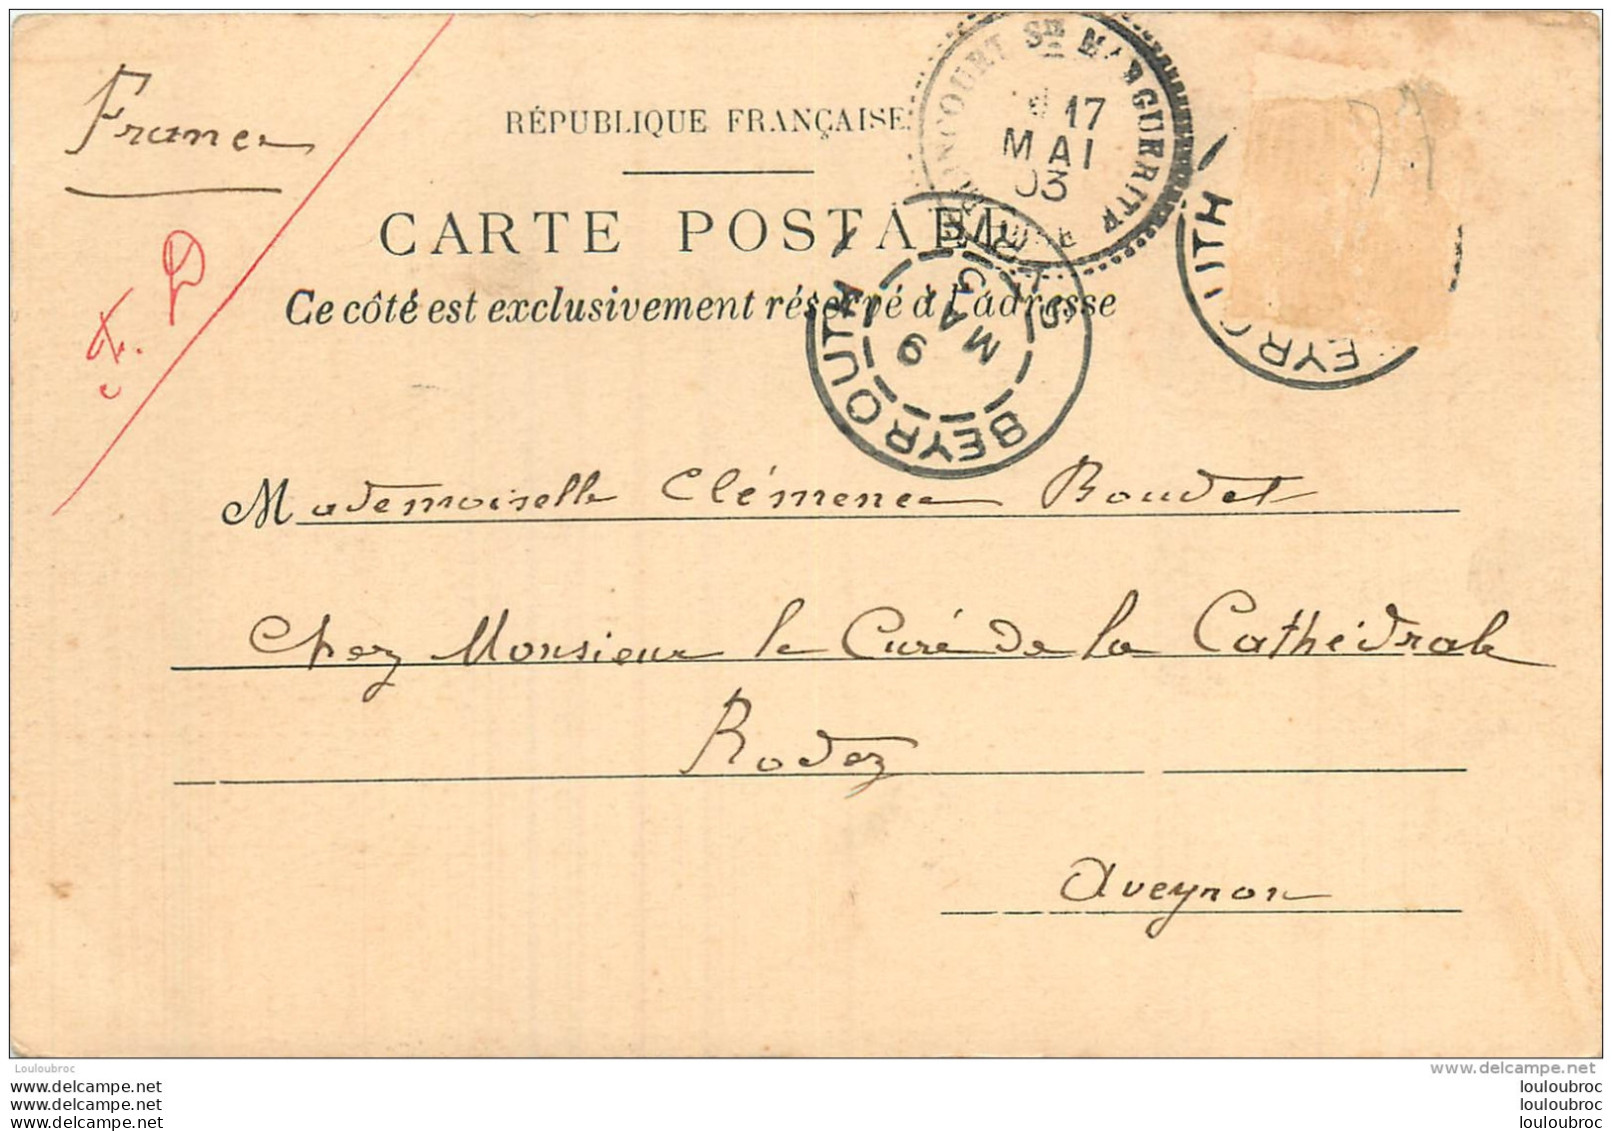 France
RÉPUBLIQUE FRANÇAISE
CARTE POSTALE
Ce côté est exclusivement réservé à l'adresse
F. D.
Ste MARGUERITE
17
MAI
03
BEYROUTH
9
MA
BEYROUTH
Mademoiselle Clémence Boudet
Chez Monsieur le Curé de la Cathédrale
Rodez
Aveyron
Louloubroc
www.delcampe.net
www.delcampe.net
www.delcampe.net
www.delcampe.net
louloubroc
louloubroc
louloubroc